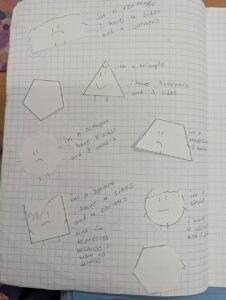 im a rectangle
i have 4 sides
and 4 corners
im a triangle
i have 3 corners
and 3 sides
im a octagon
i have 8 sides
and 8 corners
im a
i have
im a square
i have 4 sides
and 4 corners
and im
depressed
because i
went to
school
im a
i have
0
and